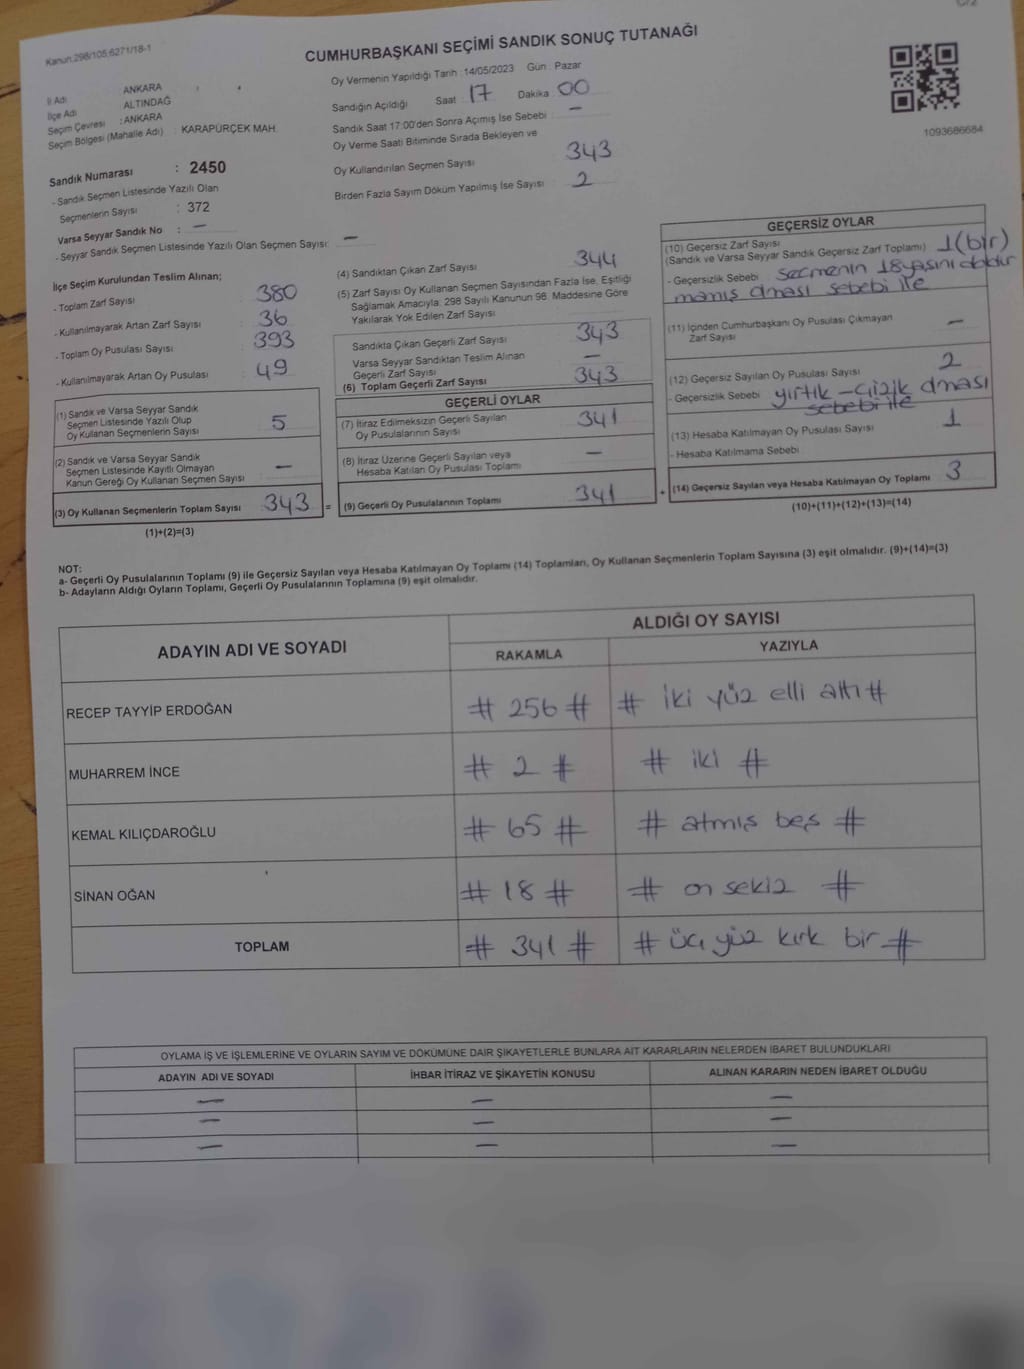 Kanun.298/105,6271/18-1
CUMHURBAŞKANI SEÇİMİ SANDIK SONUÇ TUTANAĞI
İl Adı ANKARA
İlçe Adı ALTINDAĞ
Seçim Çevresi : ANKARA
Seçim Bölgesi (Mahalle Adı) : KARAPÜRÇEK MAH.
Oy Vermenin Yapıldığı Tarih : 14/05/2023 Gün : Pazar
Sandığın Açıldığı Saat 17 Dakika 00
Sandık Saat 17:00'den Sonra Açımış İse Sebebi : —
Oy Verme Saati Bitiminde Sırada Bekleyen ve
Oy Kullandırılan Seçmen Sayısı 343
Birden Fazla Sayım Döküm Yapılmış İse Sayısı 2
1093686684
Sandık Numarası : 2450
- Sandık Seçmen Listesinde Yazılı Olan
Seçmenlerin Sayısı : 372
Varsa Seyyar Sandık No : —
- Seyyar Sandık Seçmen Listesinde Yazılı Olan Seçmen Sayısı: —
İlçe Seçim Kurulundan Teslim Alınan;
- Toplam Zarf Sayısı : 380
- Kullanılmayarak Artan Zarf Sayısı : 36
- Toplam Oy Pusulası Sayısı : 393
- Kullanılmayarak Artan Oy Pusulası : 49
(1) Sandık ve Varsa Seyyar Sandık
Seçmen Listesinde Yazılı Olup
Oy Kullanan Seçmenlerin Sayısı : 5
(2) Sandık ve Varsa Seyyar Sandık
Seçmen Listesinde Kayıtlı Olmayan
Kanun Gereği Oy Kullanan Seçmen Sayısı : —
(3) Oy Kullanan Seçmenlerin Toplam Sayısı 343 =
(1)+(2)=(3)
(4) Sandıktan Çıkan Zarf Sayısı 344
(5) Zarf Sayısı Oy Kullanan Seçmen Sayısından Fazla İse, Eşitliği
Sağlamak Amacıyla; 298 Sayılı Kanunun 98. Maddesine Göre
Yakılarak Yok Edilen Zarf Sayısı
Sandıkta Çıkan Geçerli Zarf Sayısı 343
Varsa Seyyar Sandıktan Teslim Alınan
Geçerli Zarf Sayısı —
(6) Toplam Geçerli Zarf Sayısı 343
GEÇERLİ OYLAR
(7) İtiraz Edilmeksizin Geçerli Sayılan
Oy Pusulalarının Sayısı 341
(8) İtiraz Üzerine Geçerli Sayılan veya
Hesaba Katılan Oy Pusulası Toplamı —
(9) Geçerli Oy Pusulalarının Toplamı 341 +
GEÇERSİZ OYLAR
(10) Geçersiz Zarf Sayısı 1(bir)
(Sandık ve Varsa Seyyar Sandık Geçersiz Zarf Toplamı)
- Geçersizlik Sebebi seçmenin 18 yaşını doldur
mamış olması sebebi ile
(11) İçinden Cumhurbaşkanı Oy Pusulası Çıkmayan
Zarf Sayısı —
(12) Geçersiz Sayılan Oy Pusulası Sayısı 2
- Geçersizlik Sebebi yırtık - çizik olması
sebebi ile
(13) Hesaba Katılmayan Oy Pusulası Sayısı 1
- Hesaba Katılmama Sebebi
(14) Geçersiz Sayılan veya Hesaba Katılmayan Oy Toplamı 3
(10)+(11)+(12)+(13)=(14)
NOT:
a- Geçerli Oy Pusulalarının Toplamı (9) ile Geçersiz Sayılan veya Hesaba Katılmayan Oy Toplamı (14) Toplamları, Oy Kullanan Seçmenlerin Toplam Sayısına (3) eşit olmalıdır. (9)+(14)=(3)
b- Adayların Aldığı Oyların Toplamı, Geçerli Oy Pusulalarının Toplamına (9) eşit olmalıdır.
ADAYIN ADI VE SOYADI ALDIĞI OY SAYISI
RAKAMLA YAZIYLA
RECEP TAYYİP ERDOĞAN # 256 # # iki yüz elli altı #
MUHARREM İNCE # 2 # # iki #
KEMAL KILIÇDAROĞLU # 65 # # atmış beş #
SİNAN OĞAN # 18 # # on sekiz #
TOPLAM # 341 # # üç yüz kırk bir #
OYLAMA İŞ VE İŞLEMLERİNE VE OYLARIN SAYIM VE DÖKÜMÜNE DAİR ŞİKAYETLERLE BUNLARA AİT KARARLARIN NELERDEN İBARET BULUNDUKLARI
ADAYIN ADI VE SOYADI İHBAR İTİRAZ VE ŞİKAYETİN KONUSU ALINAN KARARIN NEDEN İBARET OLDUĞU
— — —
— — —
— — —